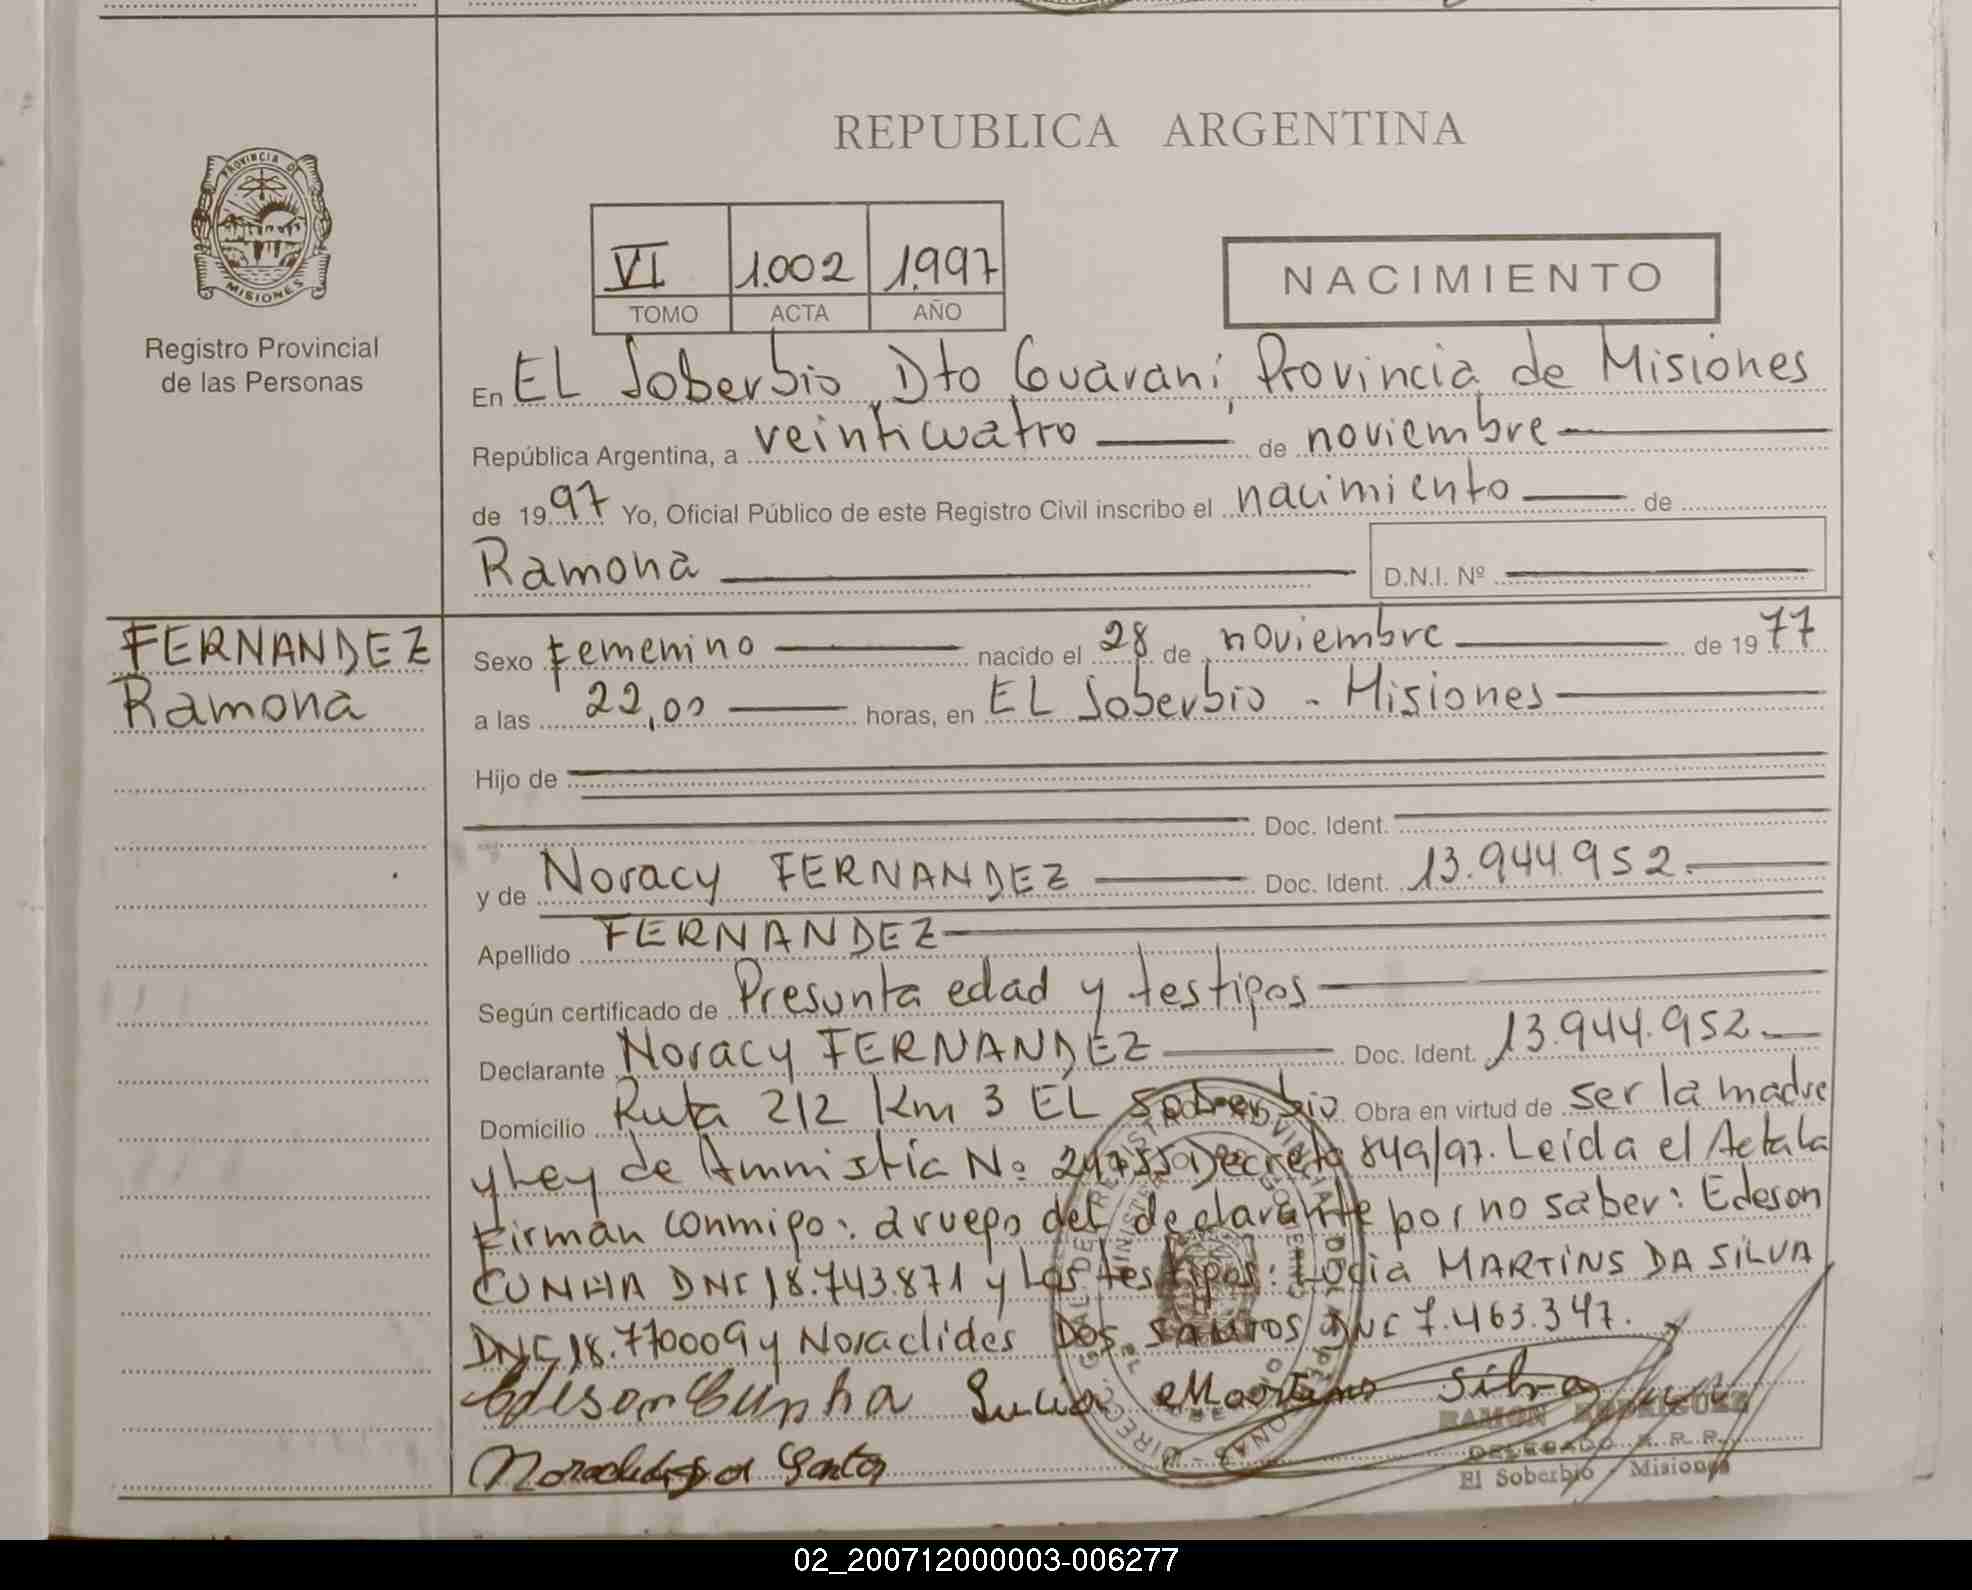 REPUBLICA ARGENTINA
PROVINCIA DE
MISIONES
Registro Provincial
de las Personas
VI 1.002 1.997
TOMO ACTA AÑO
NACIMIENTO
En EL Soberbio, Dto Guaraní, Provincia de Misiones
República Argentina, a veinticuatro de noviembre
de 1997 Yo, Oficial Público de este Registro Civil inscribo el nacimiento de
Ramona D.N.I. Nº
FERNANDEZ
Ramona
Sexo Femenino nacido el 28 de noviembre de 1977
a las 22,00 horas, en EL Soberbio - Misiones
Hijo de
Doc. Ident.
y de Noracy FERNANDEZ Doc. Ident. 13.944.952.
Apellido FERNANDEZ
Según certificado de Presunta edad y testigos
Declarante Noracy FERNANDEZ Doc. Ident. 13.944.952
Domicilio Ruta 212 Km 3 EL Soberbio Obra en virtud de ser la madre
y Ley de Amnistía No: 24755 Decreto 849/97. Leída el Acta la
Firman conmigo: a ruego del declarante por no saber: Edeson
CUNHA DNI 18.743.871 y los testigos: Lucia MARTINS DA SILVA
DNI 18.770009 y Noraclides DOS SANTOS DNI 7.463.347.
Edeson Cunha Lucia Martins Silva
RAMON RODRIGUEZ
DELEGADO R. P.
El Soberbio - Misiones
02_200712000003-006277